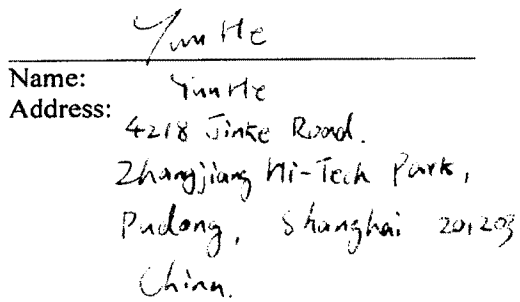 Yun He
Name: Yun He
Address:
4218 Jinke Road.
Zhangjiang Hi-Tech Park,
Pudong, Shanghai 201203
China.